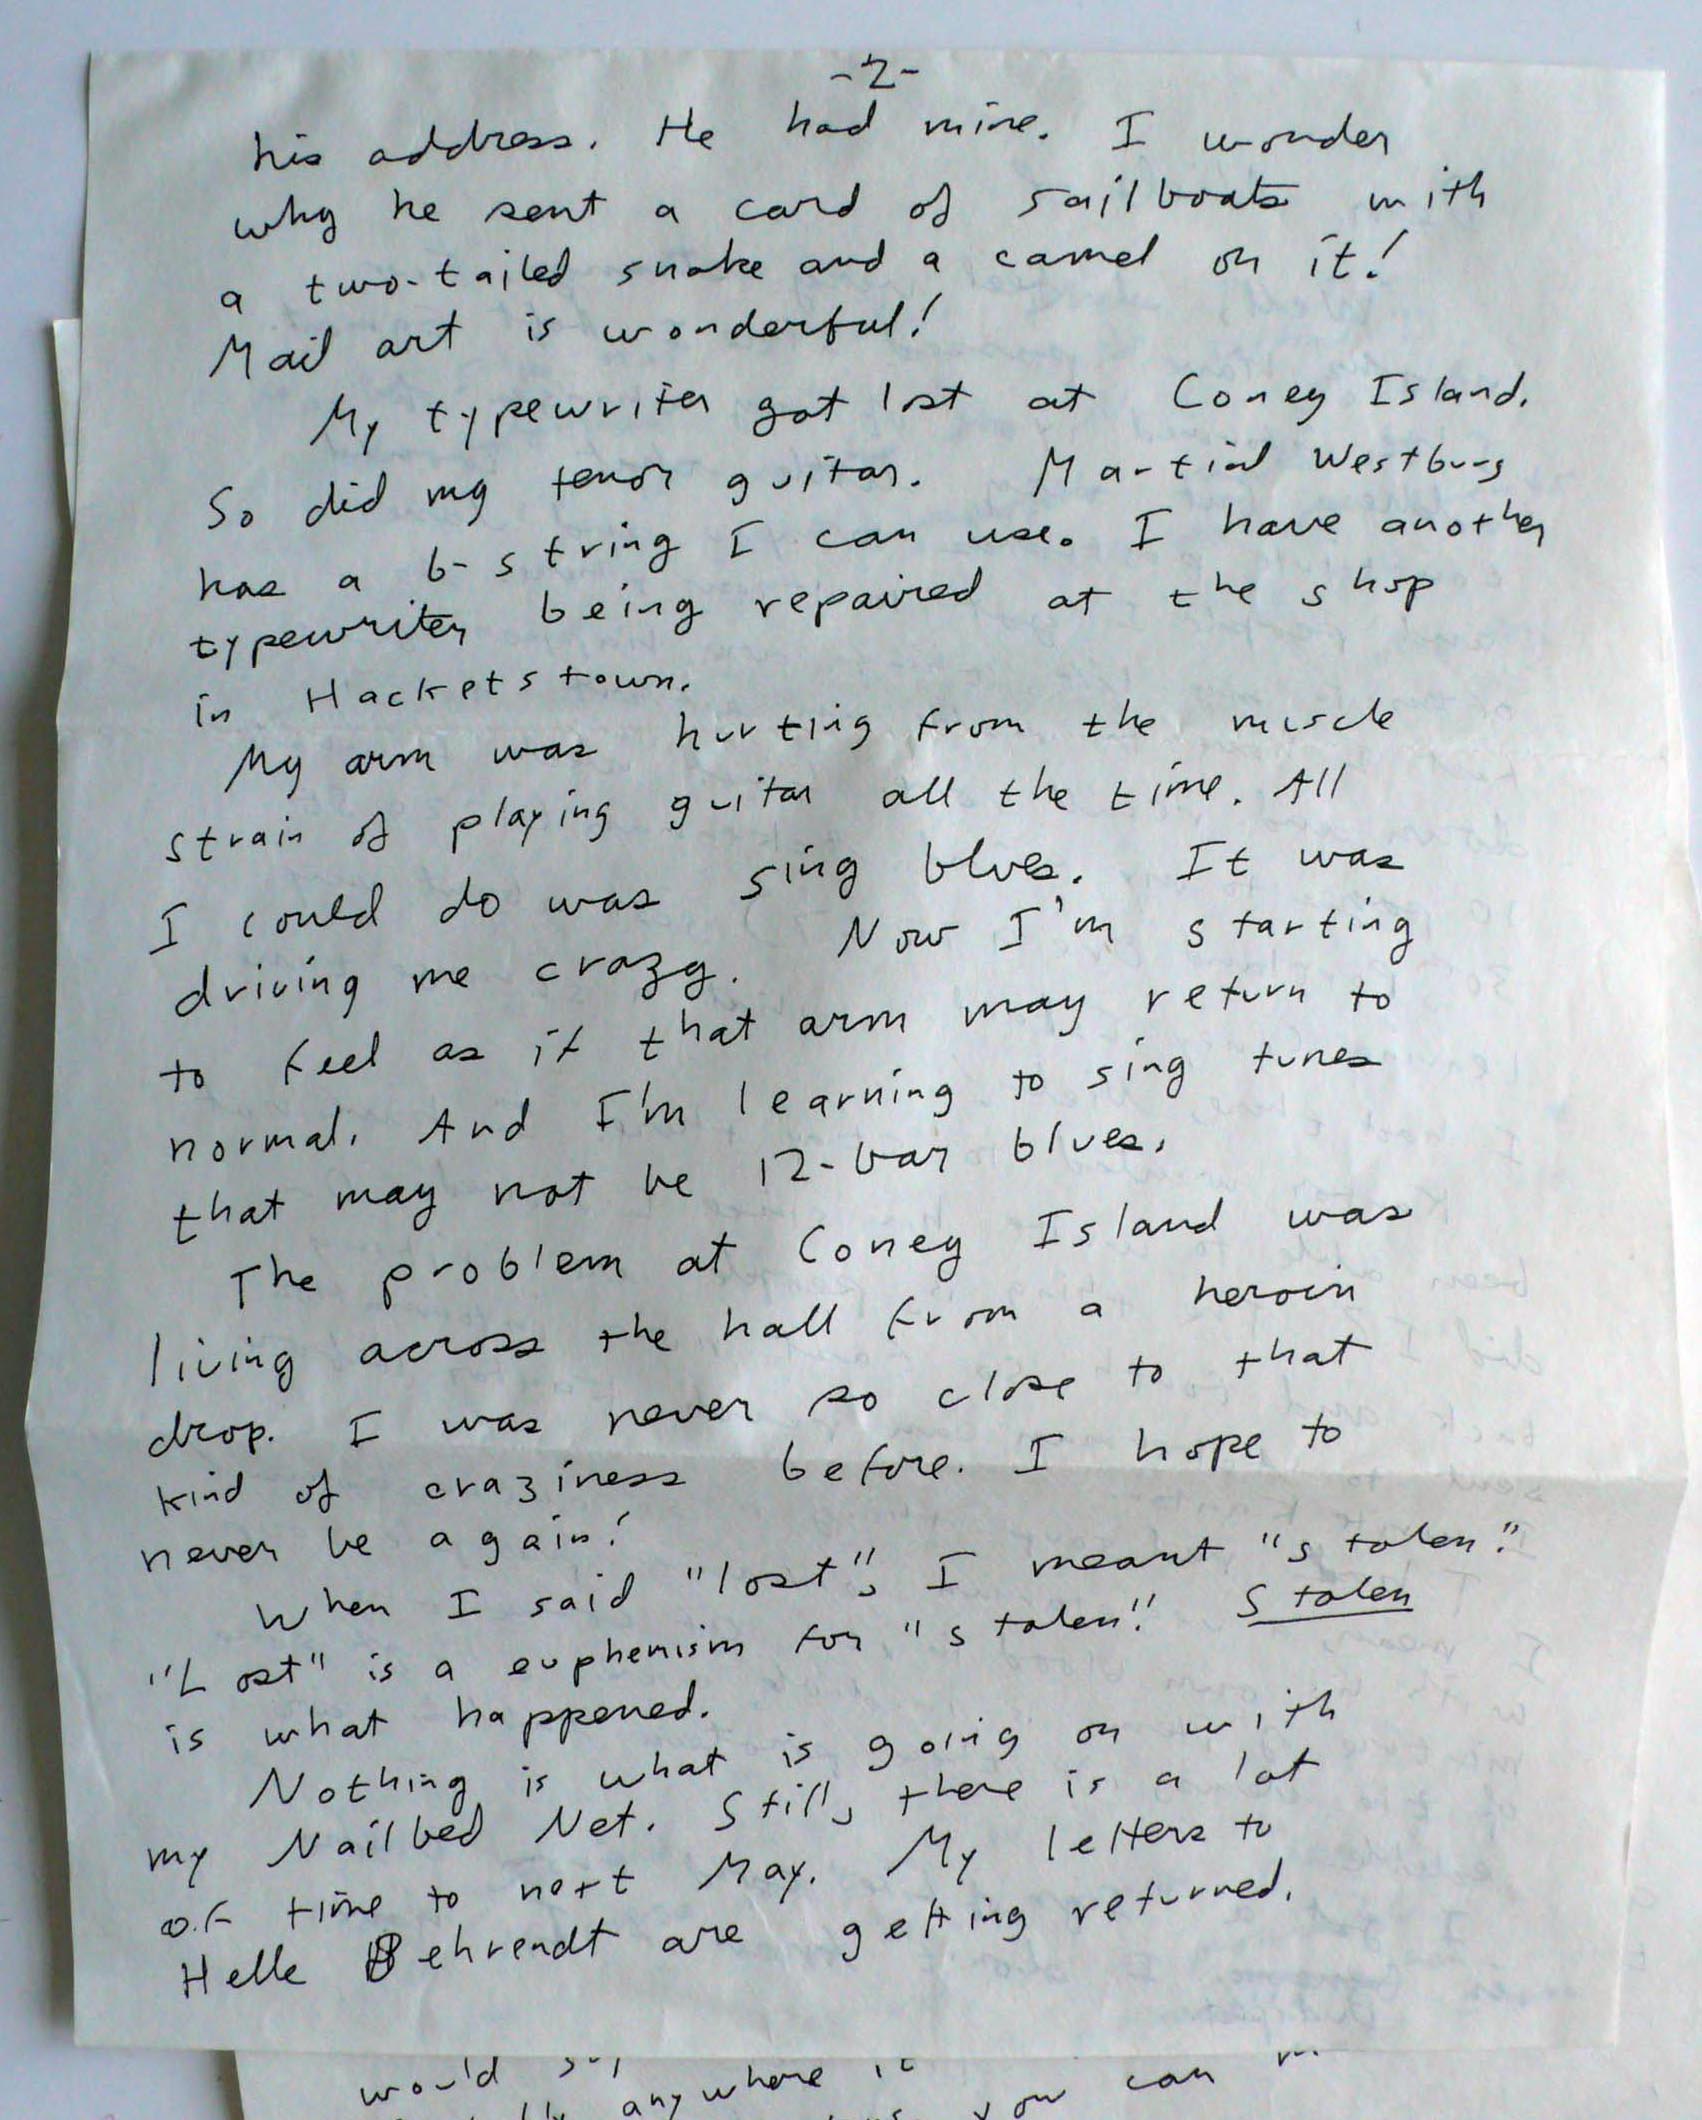 -2-
his address. He had mine. I wonder
why he sent a card of sailboats with
a two-tailed snake and a camel on it!
Mail art is wonderful!
My typewriter got lost at Coney Island.
So did my tenor guitar. Martial Westburg
has a 6-string I can use. I have another
typewriter being repaired at the shop
in Hacketstown.
My arm was hurting from the muscle
strain of playing guitar all the time. All
I could do was sing blues. It was
driving me crazy. Now I'm starting
to feel as if that arm may return to
normal. And I'm learning to sing tunes
that may not be 12-bar blues.
The problem at Coney Island was
living across the hall from a heroin
drop. I was never so close to that
kind of craziness before. I hope to
never be again!
When I said "lost", I meant "stolen".
"Lost" is a euphemism for "stolen". Stolen
is what happened.
Nothing is what is going on with
my Nailbed Net. Still, there is a lot
of time to next May. My letters to
Helle Behrendt are getting returned.
would
anywhere it
you can